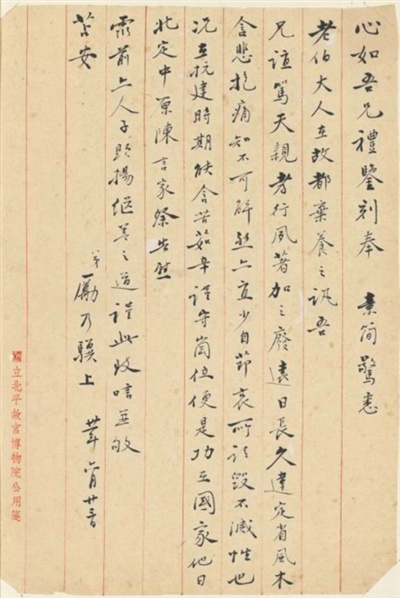 心如吾兄禮鑒刻奉 素简驚悉
老伯大人在故都棄養之訊吾
兄誼篤天親孝行夙著加之遠日長久違定省風木
含悲抱痛知不可解然亦宜少自節哀所謂毀不滅性也
況在抗建時期能含苦茹辛謹守崗位便是功在國家他日
北定中原陳言家祭告慰
靈前亦人子顯揚繼善之道謹此致唁並候
苫安
弟勵乃驥上 六月廿
國立北平故宮博物院公用箋